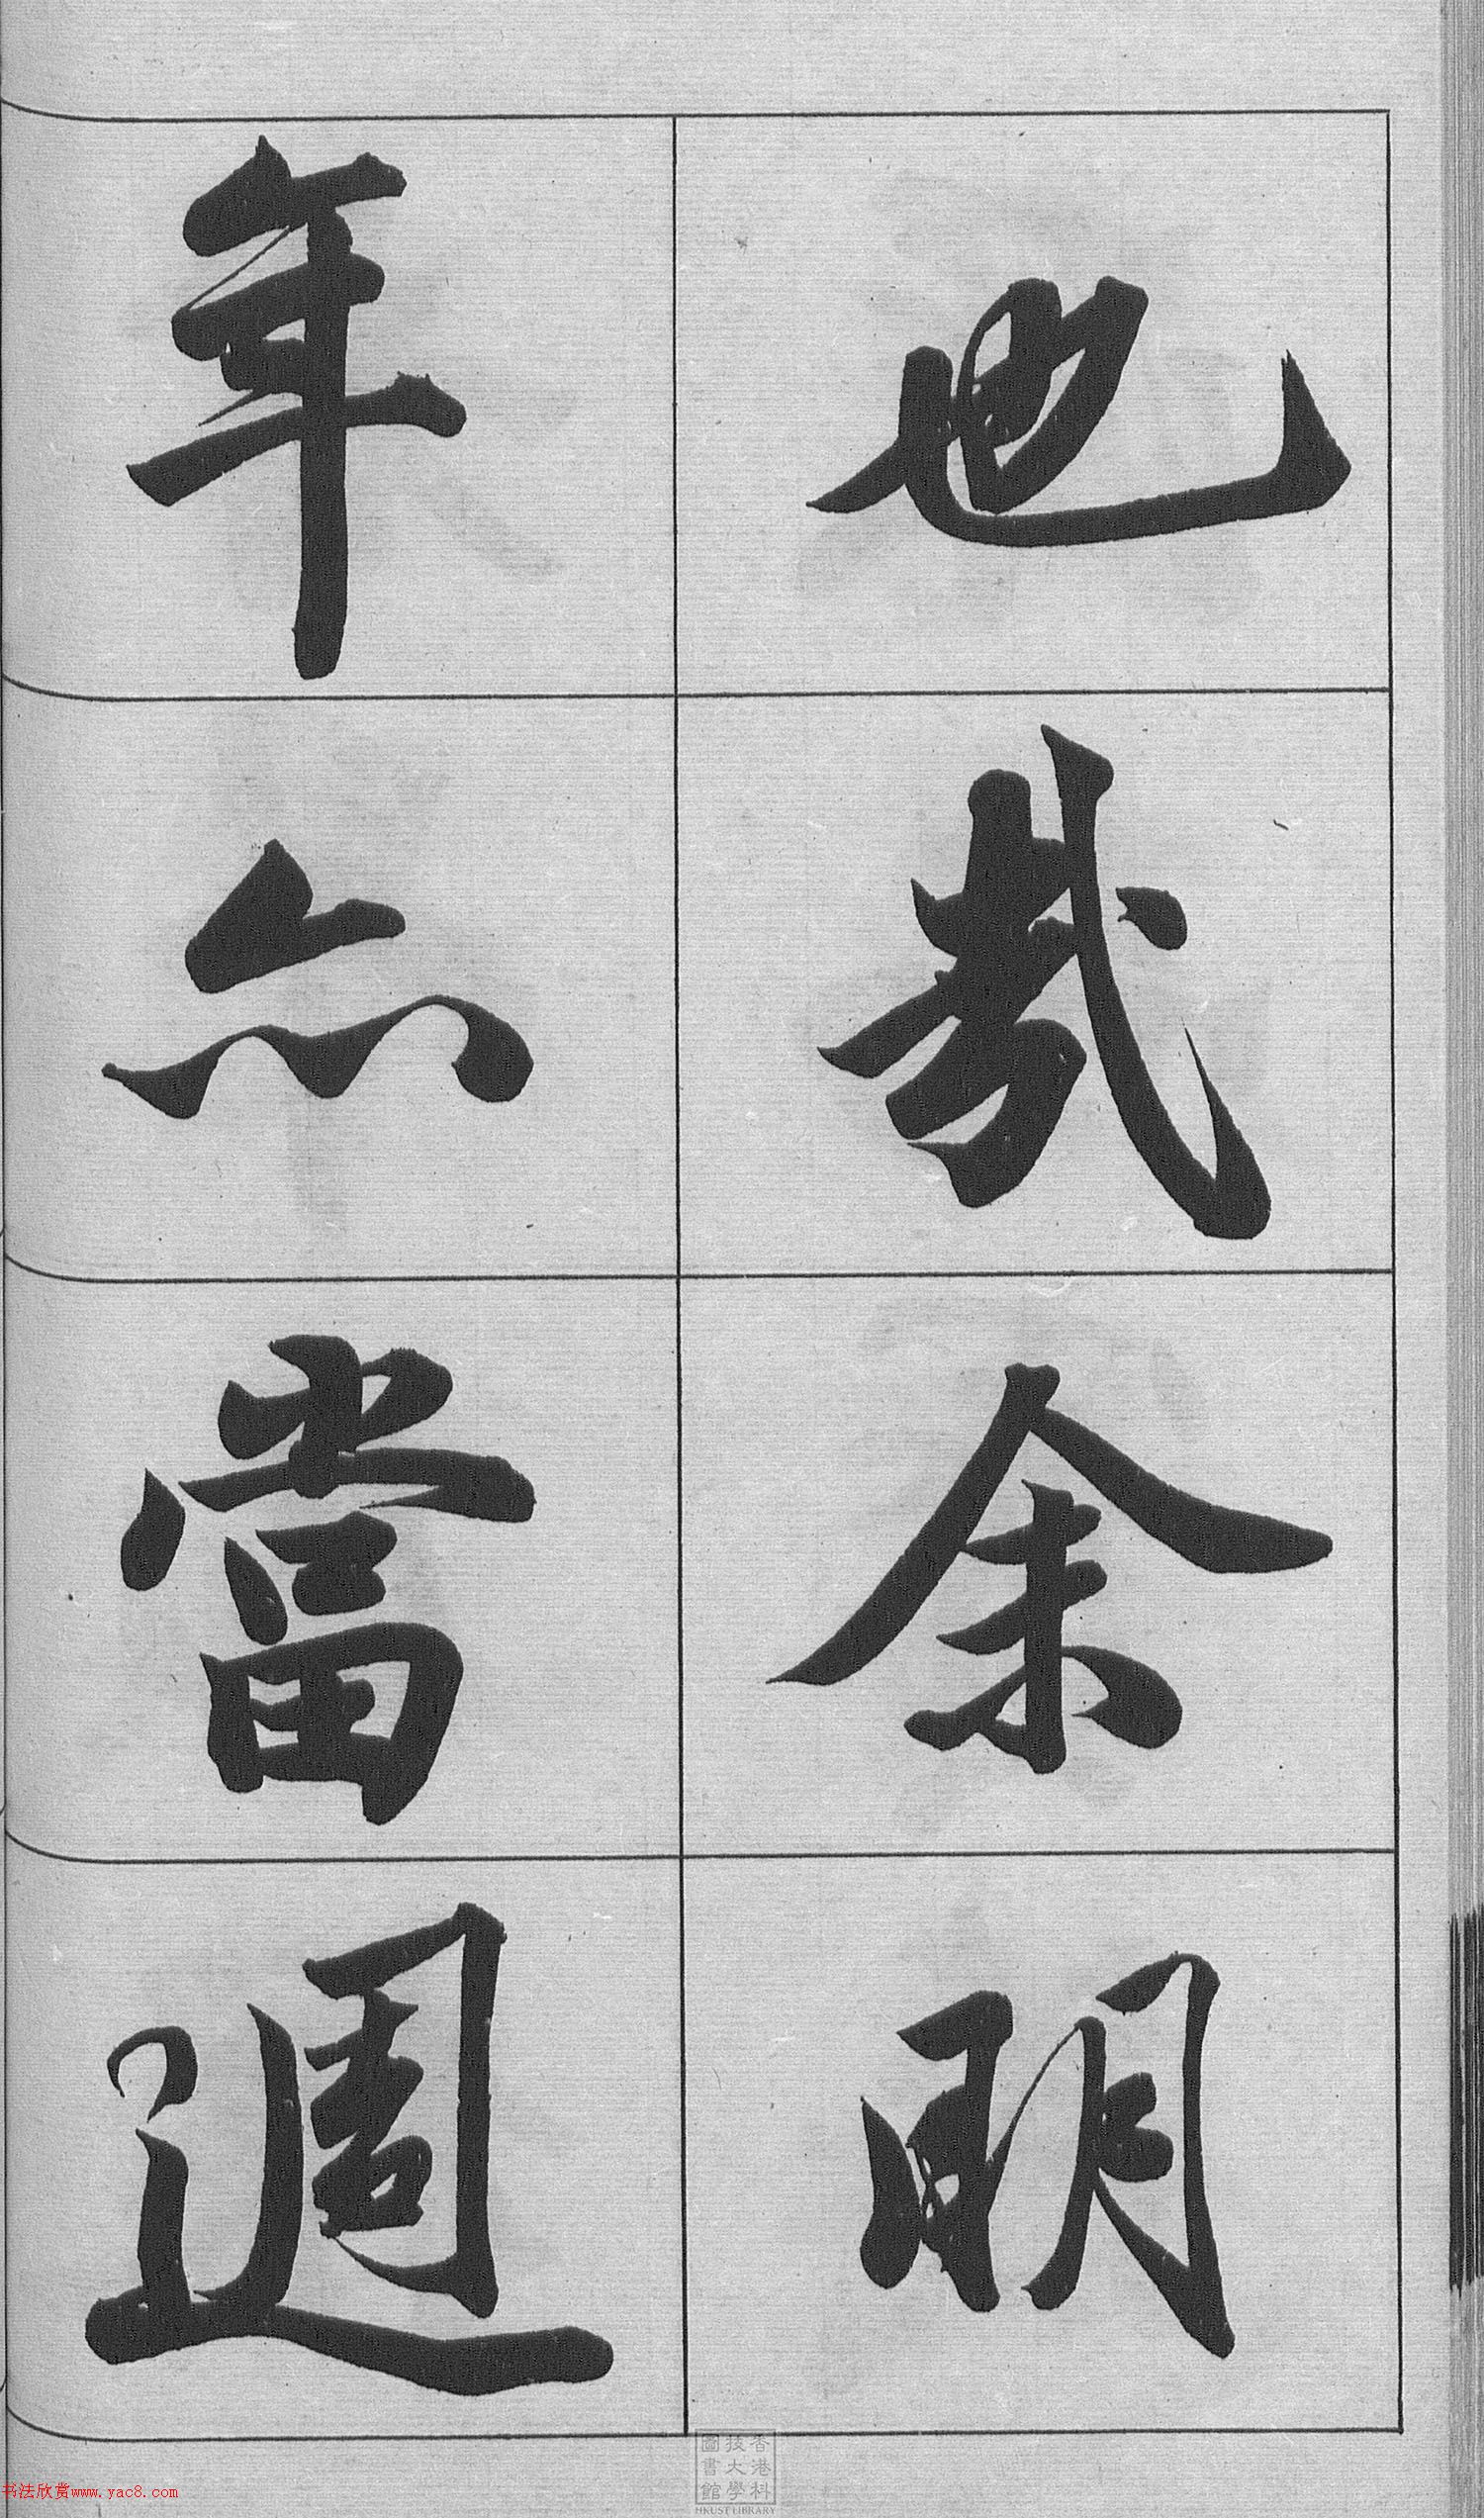 也哉余明
年亦當週
香港科技大學圖書館
HKUST LIBRARY
书法欣赏www.yac8.com